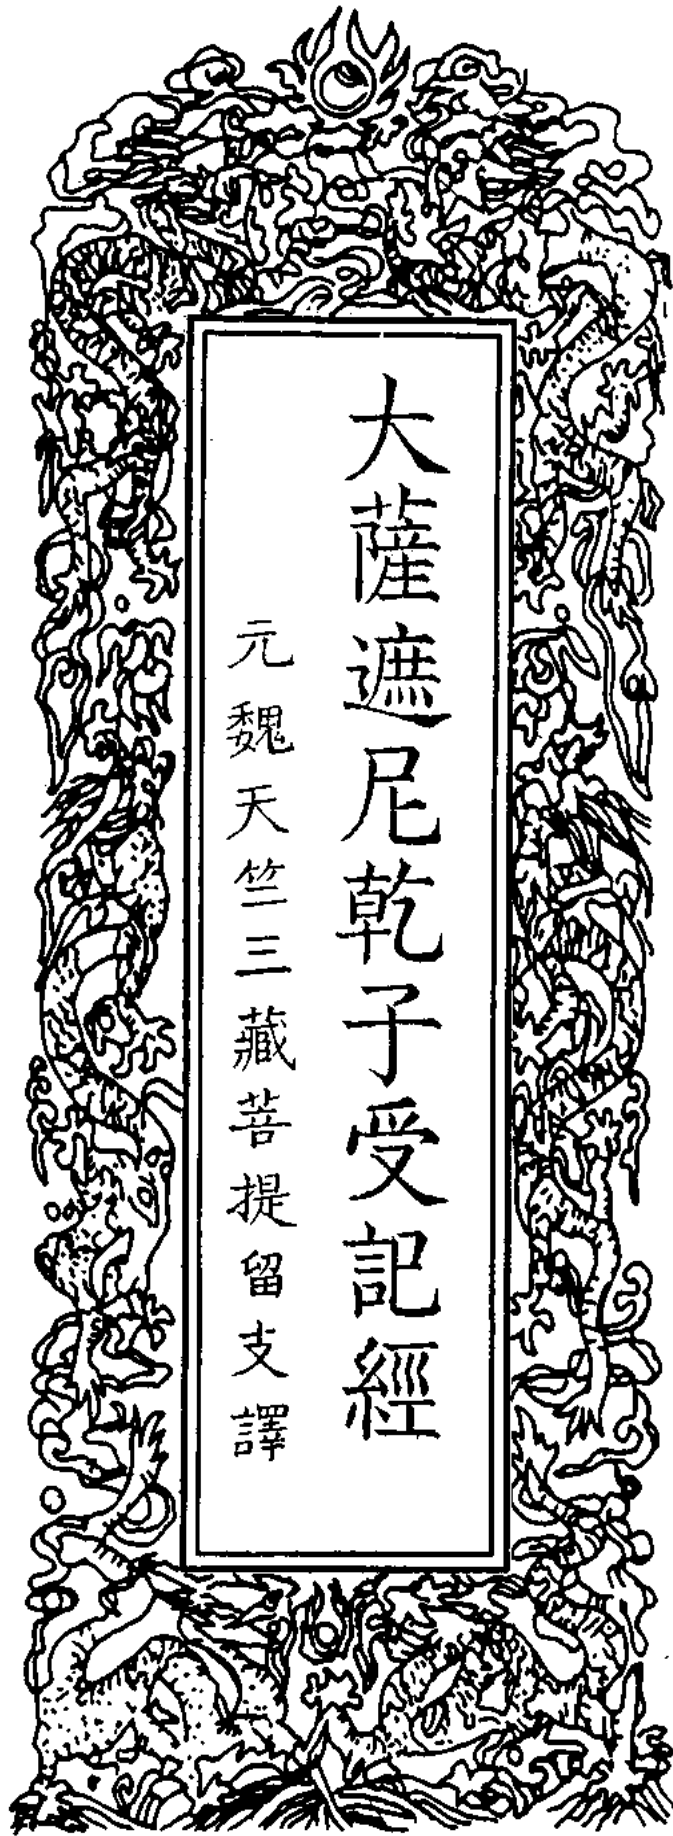 大薩遮尼乾子受記經
元魏天竺三藏菩提留支譯